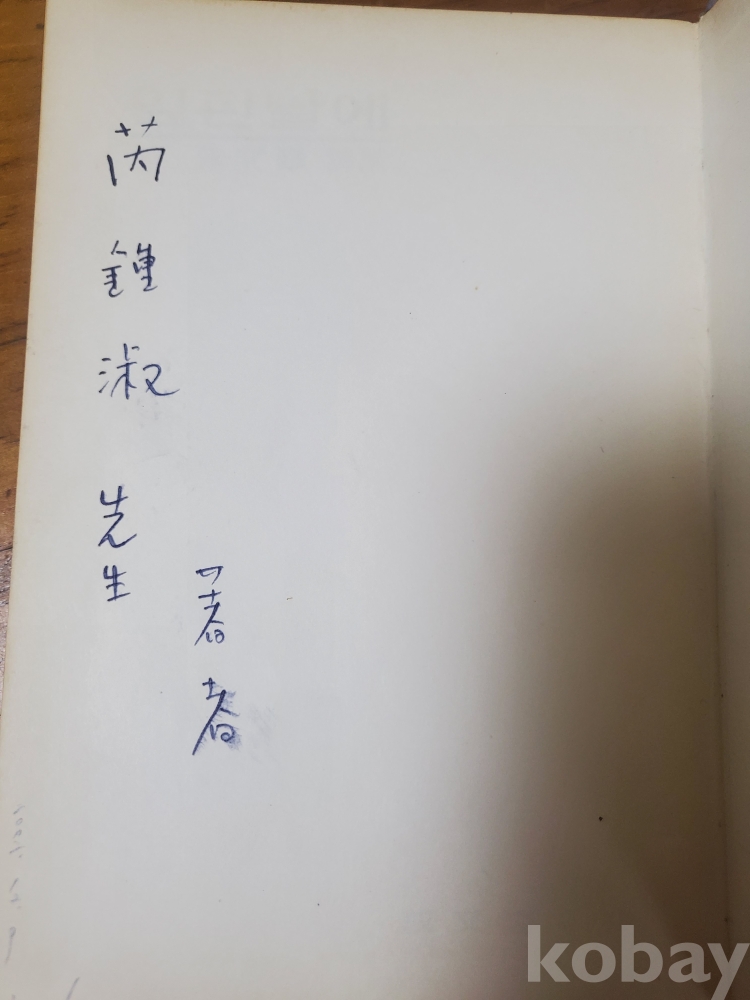 芮鍾淑 先生
著者
kobay